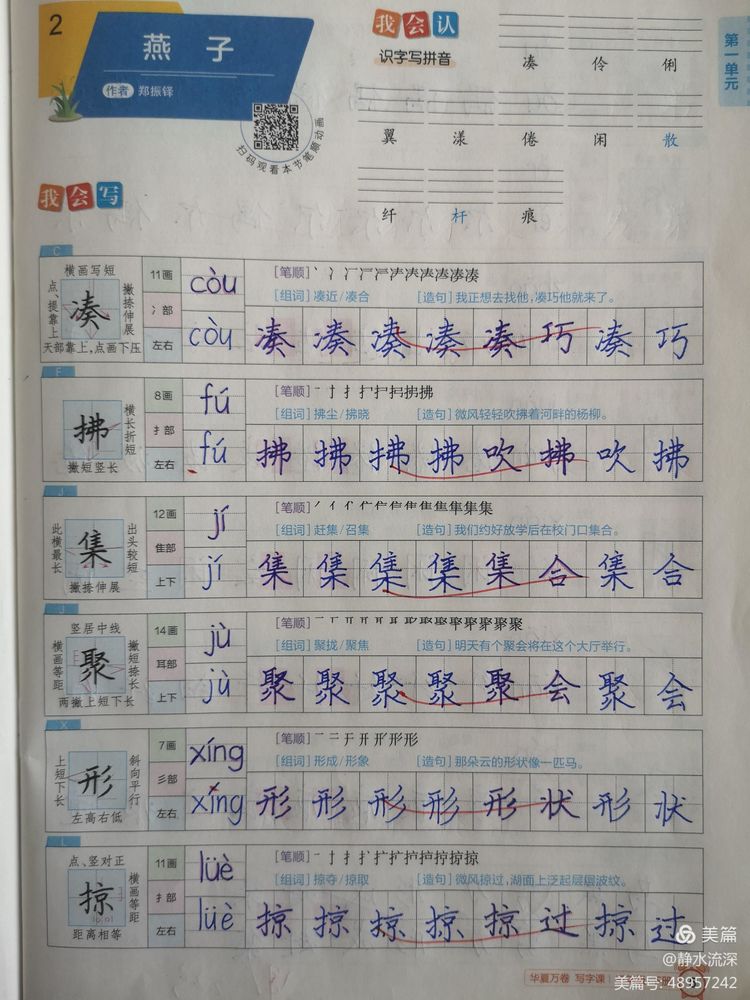 2
燕子
作者 郑振铎
扫码观看本节笔顺动画
我会认
识字写拼音
第一单元
凑 伶 俐
翼 漾 倦 闲 散
纤 杆 痕
我会写
C
横画写短
点、提靠上
撇捺伸展
凑
天部靠上,点画下压
11画
冫部
左右
còu
còu
[笔顺]
[组词]凑近/凑合 [造句]我正想去找他,凑巧他就来了。
凑 凑 凑 凑 凑 巧 凑 巧
F
横长折短
拂
撇短竖长
8画
扌部
左右
fú
fú
[笔顺]
[组词]拂尘/拂晓 [造句]微风轻轻吹拂着河畔的杨柳。
拂 拂 拂 拂 吹 拂 吹 拂
J
此横最长
出头较短
集
撇捺伸展
12画
隹部
上下
jí
jí
[笔顺]
[组词]赶集/召集 [造句]我们约好放学后在校门口集合。
集 集 集 集 集 合 集 合
J
竖居中线
横画等距
撇短捺长
聚
两撇上短下长
14画
耳部
上下
jù
jù
[笔顺]
[组词]聚拢/聚焦 [造句]明天有个聚会将在这个大厅举行。
聚 聚 聚 聚 聚 会 聚 会
X
上短下长
斜向平行
形
左高右低
7画
彡部
左右
xíng
xíng
[笔顺]
[组词]形成/形象 [造句]那朵云的形状像一匹马。
形 形 形 形 形 状 形 状
L
点、竖对正
横画等距
掠
距离相等
11画
扌部
左右
lüè
lüè
[笔顺]
[组词]掠夺/掠取 [造句]微风掠过,湖面上泛起层层波纹。
掠 掠 掠 掠 掠 过 掠 过
华夏万卷 写字课
美篇
@静水流深
美篇号: 48957242